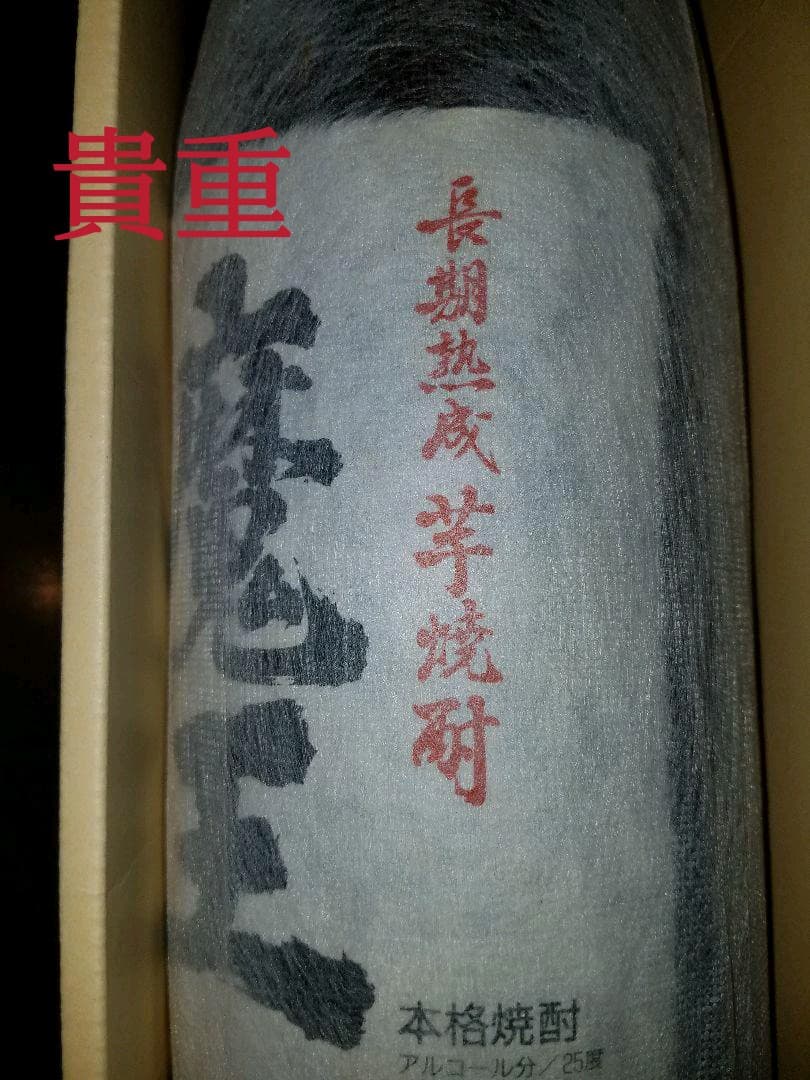 貴重
長期熟成芋焼酎
魔王
本格焼酎
アルコール分/25度